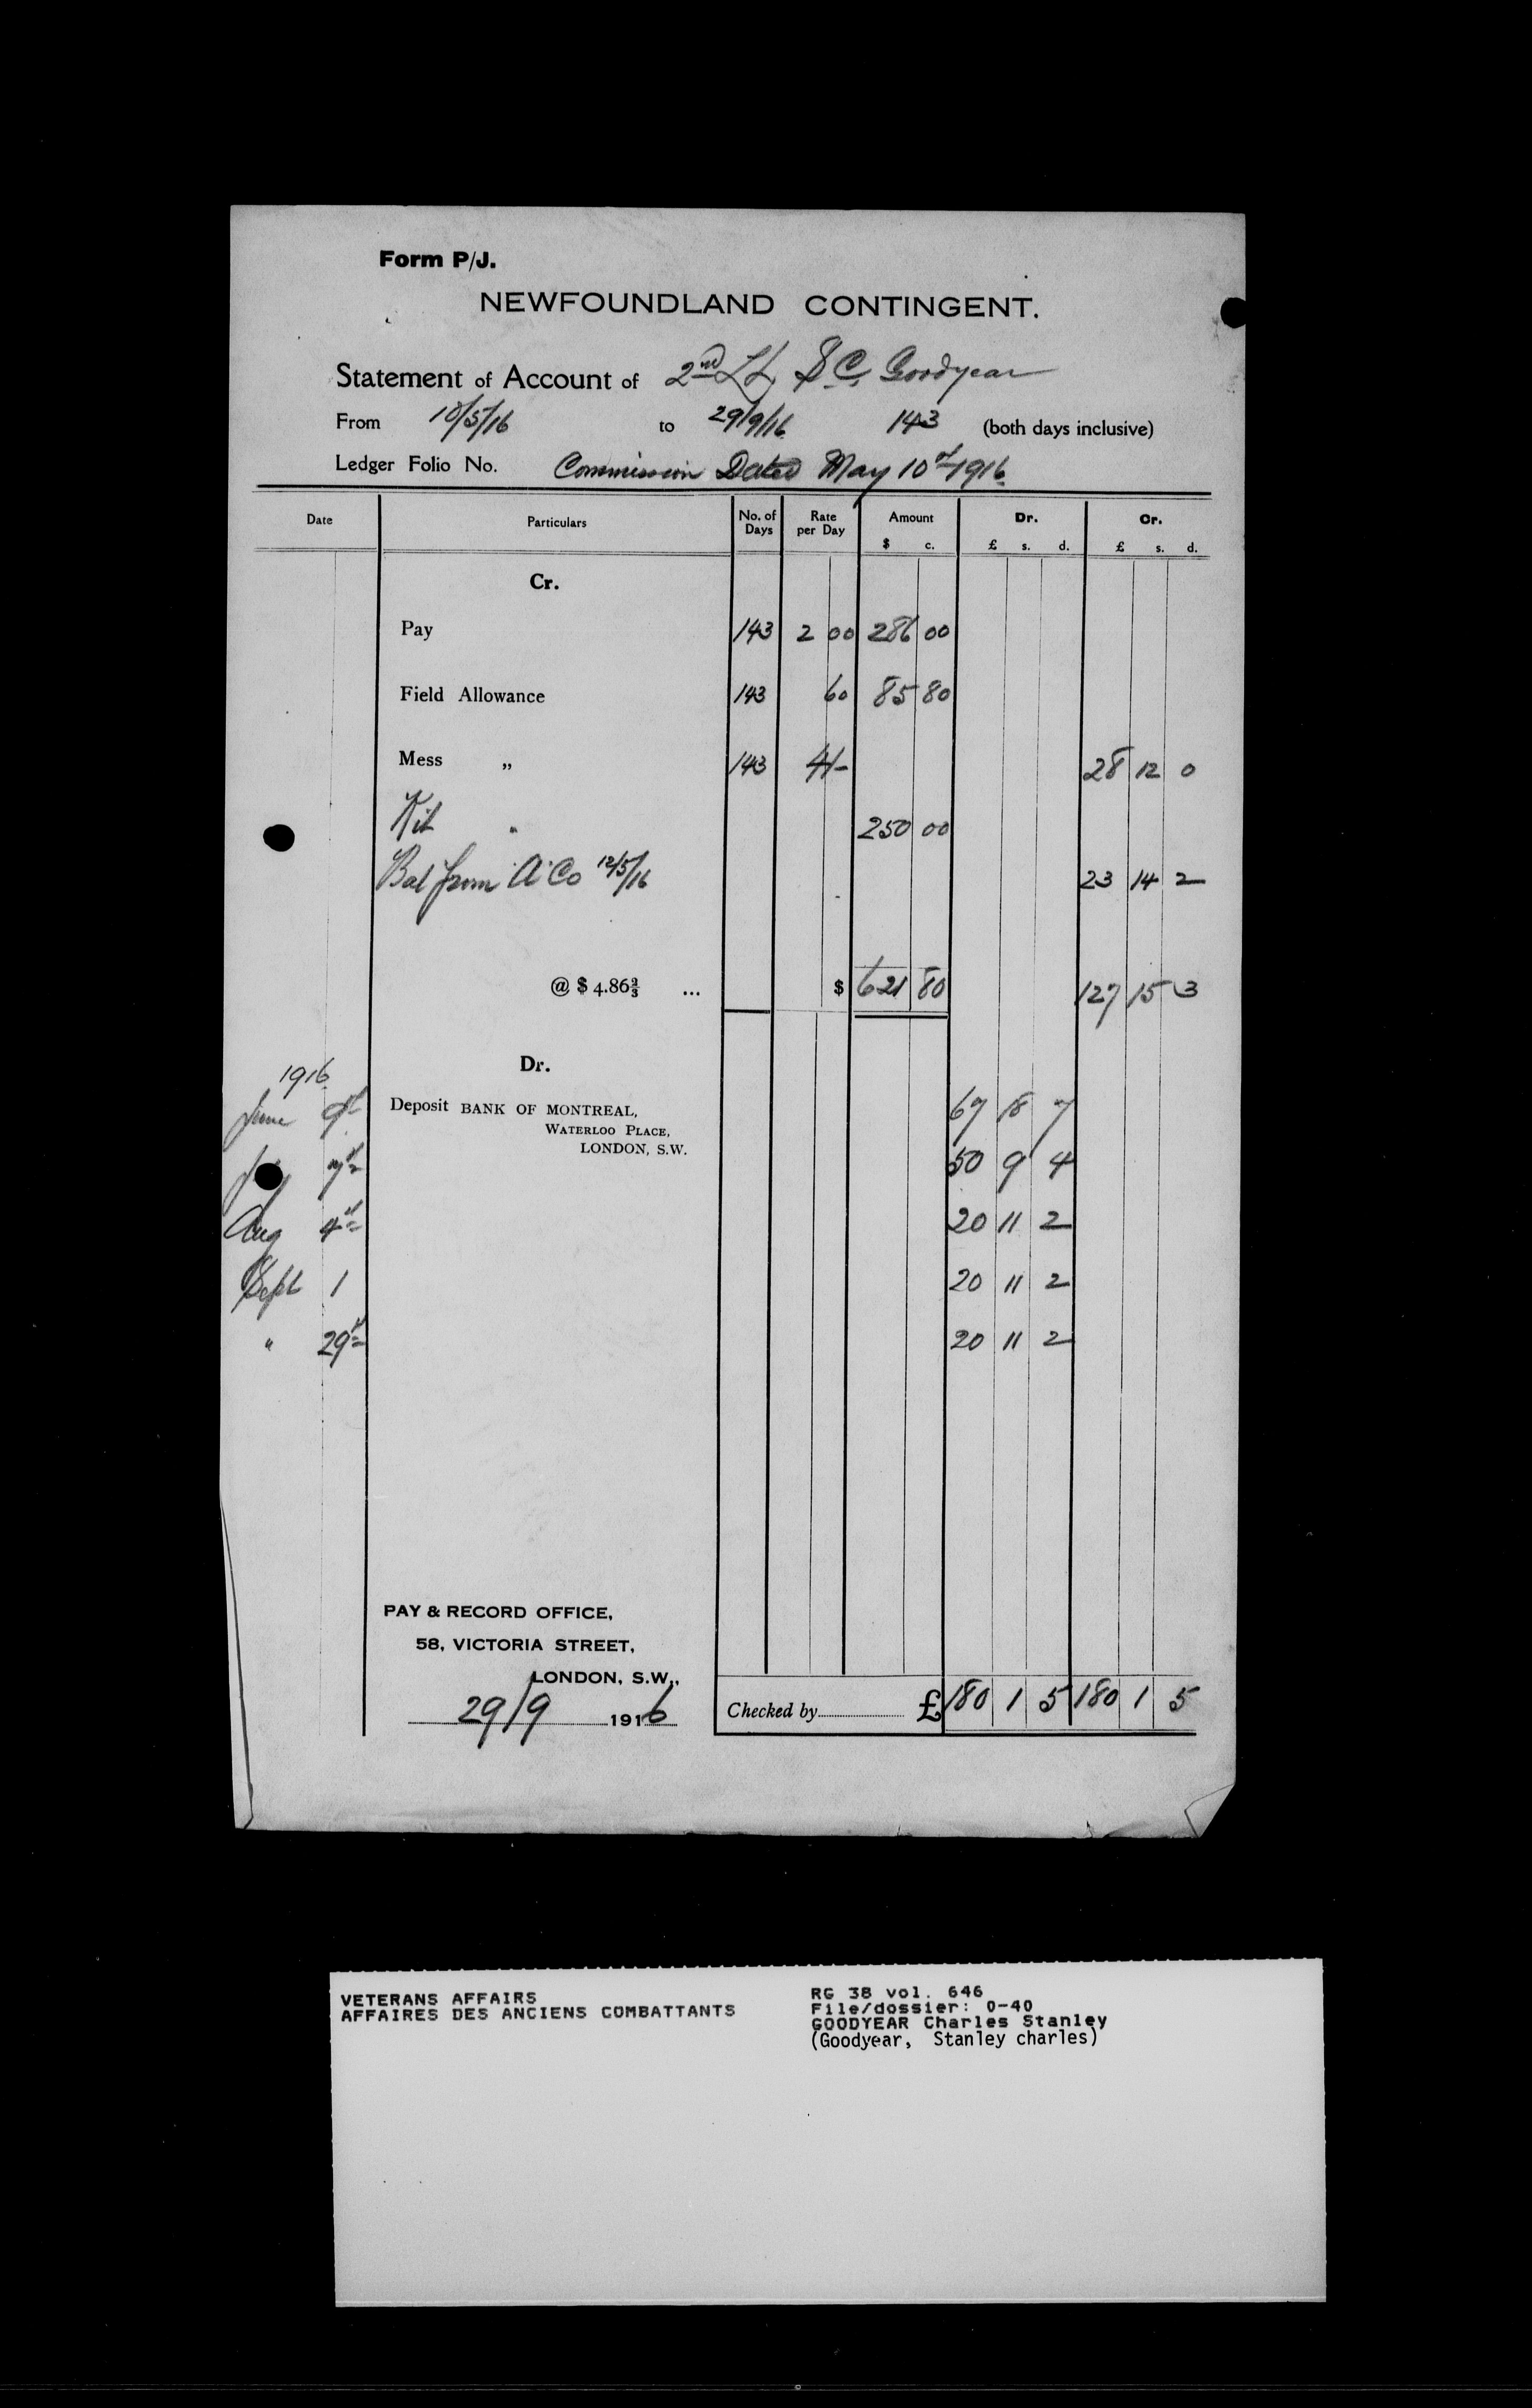 Form P/J.
NEWFOUNDLAND CONTINGENT.
Statement of Account of 2nd Lt S C. Goodyear
From 10/5/16 to 29/9/16 143 (both days inclusive)
Ledger Folio No. Commission Dated May 10th 1916
Date Particulars No. of Days Rate per Day Amount $ c. Dr. £ s. d. Cr. £ s. d.
Cr.
Pay 143 2 00 286 00
Field Allowance 143 60 85 80
Mess „ 143 4/- 28 12 0
Kit " 250 00
Bal from A Co 12/5/16 23 14 2
@ $ 4.86⅔ ... $ 621 80 127 15 3
1916
Dr.
June 9th Deposit BANK OF MONTREAL, 67 18 7
WATERLOO PLACE,
LONDON, S.W.
7th 50 9 4
Aug 4th 20 11 2
Sept 1 20 11 2
" 29th 20 11 2
PAY & RECORD OFFICE,
58, VICTORIA STREET,
LONDON, S.W.,
29/9 1916 Checked by £ 180 1 5 180 1 5
VETERANS AFFAIRS
AFFAIRES DES ANCIENS COMBATTANTS
RG 38 vol. 646
File/dossier: 0-40
GOODYEAR Charles Stanley
(Goodyear, Stanley charles)